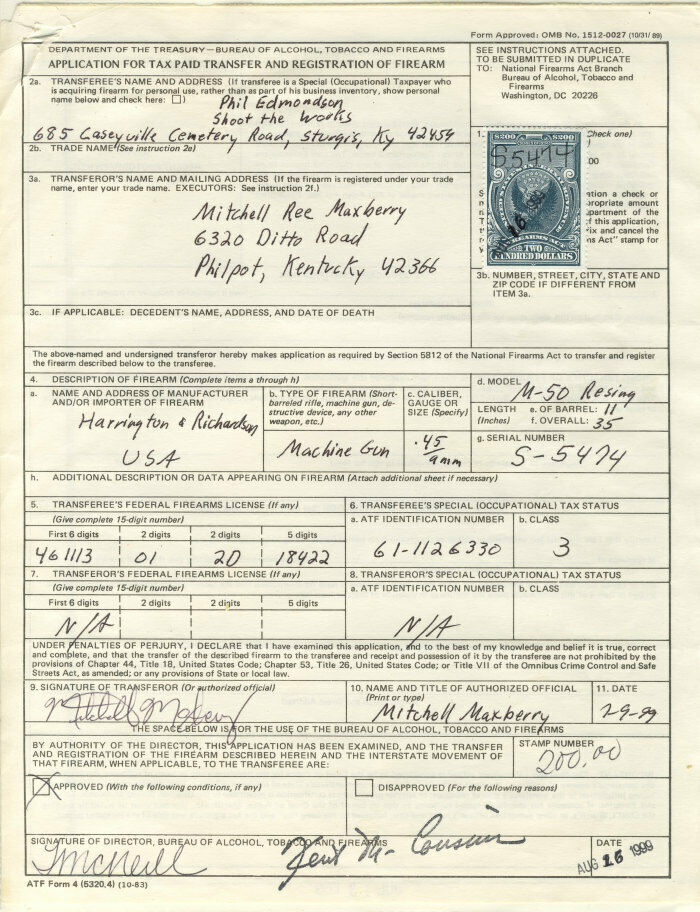 Form Approved: OMB No. 1512-0027 (10/31/89)
DEPARTMENT OF THE TREASURY—BUREAU OF ALCOHOL, TOBACCO AND FIREARMS
APPLICATION FOR TAX PAID TRANSFER AND REGISTRATION OF FIREARM
SEE INSTRUCTIONS ATTACHED.
TO BE SUBMITTED IN DUPLICATE
TO: National Firearms Act Branch
Bureau of Alcohol, Tobacco and
Firearms
Washington, DC 20226
2a. TRANSFEREE'S NAME AND ADDRESS (If transferee is a Special (Occupational) Taxpayer who
is acquiring firearm for personal use, rather than as part of his business inventory, show personal
name below and check here: )
Phil Edmondson
Shoot the Works
685 Caseyville Cemetery Road, Sturgis, Ky 42459
2b. TRADE NAME (See instruction 2e)
1.
Check one)
$200 $200
S5474
00
AUG 16 1999
FIREARMS ACT
TWO
HUNDRED DOLLARS
ation a check or
propriate amount
partment of the
f this application,
fix and cancel the
s Act" stamp for
3a. TRANSFEROR'S NAME AND MAILING ADDRESS (If the firearm is registered under your trade
name, enter your trade name. EXECUTORS: See instruction 2f.)
Mitchell Ree Maxberry
6320 Ditto Road
Philpot, Kentucky 42366
3b. NUMBER, STREET, CITY, STATE AND
ZIP CODE IF DIFFERENT FROM
ITEM 3a.
3c. IF APPLICABLE: DECEDENT'S NAME, ADDRESS, AND DATE OF DEATH
The above-named and undersigned transferor hereby makes application as required by Section 5812 of the National Firearms Act to transfer and register
the firearm described below to the transferee.
4. DESCRIPTION OF FIREARM (Complete items a through h)
a. NAME AND ADDRESS OF MANUFACTURER
AND/OR IMPORTER OF FIREARM
Harrington & Richardson
USA
b. TYPE OF FIREARM (Short-
barreled rifle, machine gun, de-
structive device, any other
weapon, etc.)
Machine Gun
c. CALIBER,
GAUGE OR
SIZE (Specify)
.45
9mm
d. MODEL
M-50 Resing
LENGTH (Inches)
e. OF BARREL: 11
f. OVERALL: 35
g. SERIAL NUMBER
S-5474
h. ADDITIONAL DESCRIPTION OR DATA APPEARING ON FIREARM (Attach additional sheet if necessary)
5. TRANSFEREE'S FEDERAL FIREARMS LICENSE (If any)
(Give complete 15-digit number)
First 6 digits 2 digits 2 digits 5 digits
461113 01 2D 18422
6. TRANSFEREE'S SPECIAL (OCCUPATIONAL) TAX STATUS
a. ATF IDENTIFICATION NUMBER b. CLASS
61-1126330 3
7. TRANSFEROR'S FEDERAL FIREARMS LICENSE (If any)
(Give complete 15-digit number)
First 6 digits 2 digits 2 digits 5 digits
N/A
8. TRANSFEROR'S SPECIAL (OCCUPATIONAL) TAX STATUS
a. ATF IDENTIFICATION NUMBER b. CLASS
N/A
UNDER PENALTIES OF PERJURY, I DECLARE that I have examined this application, and to the best of my knowledge and belief it is true, correct
and complete, and that the transfer of the described firearm to the transferee and receipt and possession of it by the transferee are not prohibited by the
provisions of Chapter 44, Title 18, United States Code; Chapter 53, Title 26, United States Code; or Title VII of the Omnibus Crime Control and Safe
Streets Act, as amended; or any provisions of State or local law.
9. SIGNATURE OF TRANSFEROR (Or authorized official)
10. NAME AND TITLE OF AUTHORIZED OFFICIAL
(Print or type)
Mitchell Maxberry
11. DATE
2-9-99
THE SPACE BELOW IS FOR THE USE OF THE BUREAU OF ALCOHOL, TOBACCO AND FIREARMS
BY AUTHORITY OF THE DIRECTOR, THIS APPLICATION HAS BEEN EXAMINED, AND THE TRANSFER
AND REGISTRATION OF THE FIREARM DESCRIBED HEREIN AND THE INTERSTATE MOVEMENT OF
THAT FIREARM, WHEN APPLICABLE, TO THE TRANSFEREE ARE:
STAMP NUMBER
200.00
APPROVED (With the following conditions, if any)
DISAPPROVED (For the following reasons)
SIGNATURE OF DIRECTOR, BUREAU OF ALCOHOL, TOBACCO AND FIREARMS
TMcNeill
DATE
AUG 16 1999
ATF Form 4 (5320.4) (10-83)